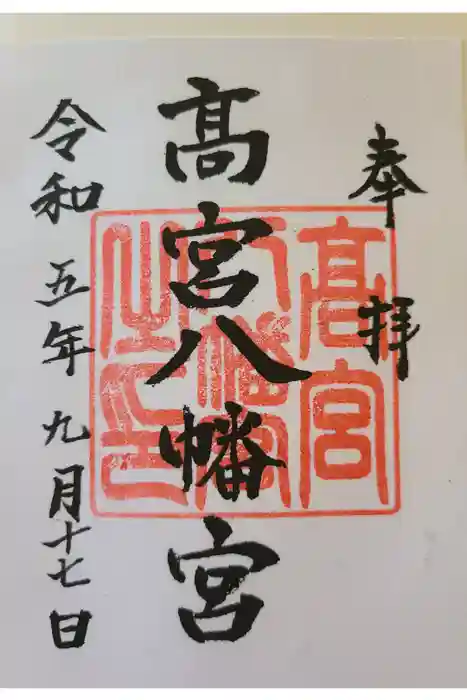 奉拝
髙宮八幡宮
令和五年九月十七日
髙宮
八幡宮
之印